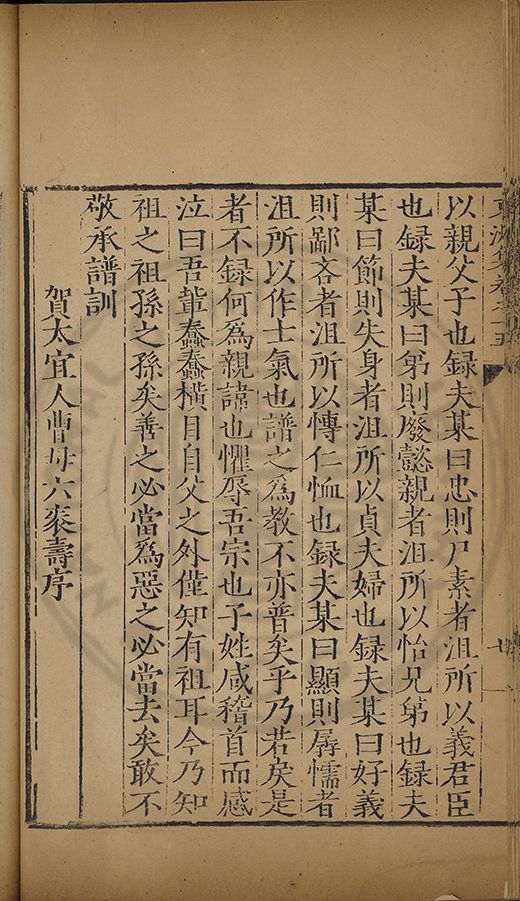 以親父子也録夫某曰忠則尸素者沮所以義君臣
也録夫某曰弟則廢懿親者沮所以怡兄弟也録夫
某曰節則失身者沮所以貞夫婦也録夫某曰好義
則鄙吝者沮所以慱仁恤也録夫某曰顯則孱懦者
沮所以作士氣也譜之為教不亦普矣乎乃若戾是
者不録何為親諱也懼辱吾宗也子姓咸稽首而感
泣曰吾輩蠢蠢橫目自父之外僅知有祖耳今乃知
祖之祖孫之孫矣善之必當為惡之必當去矣敢不
敬承譜訓
賀太宜人曹母六袠壽序